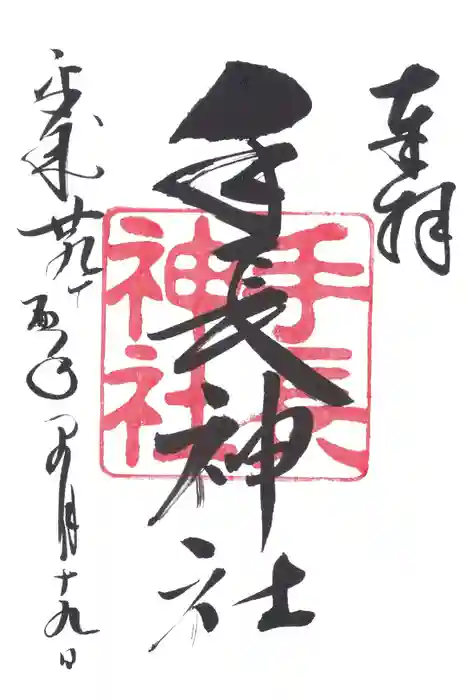 奉拝
手長神社
手長
神社
平成廿九丁酉年四月十九日